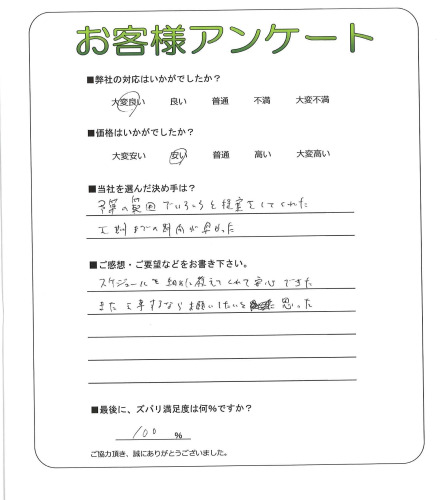 お客様アンケート
■弊社の対応はいかがでしたか?
大変良い 良い 普通 不満 大変不満
■価格はいかがでしたか?
大変安い 安い 普通 高い 大変高い
■当社を選んだ決め手は?
予算の範囲でいろいろと提案をしてくれた
工期までの時間が早かった
■ご感想・ご要望などをお書き下さい。
スケジュールを細かに教えてくれて安心できた
また工事するならお願いしたいと思った
■最後に、ズバリ満足度は何%ですか?
100 %
ご協力頂き、誠にありがとうございました。